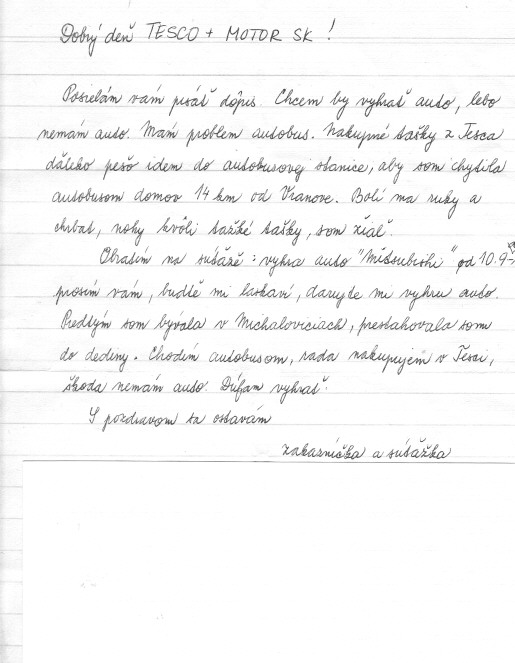 Dobrý deň TESCO + MOTOR SK !
Posielám vám písať dopis. Chcem by vyhrať auto, lebo
nemám auto. Mám problem autobus. Nakupné tašky z Tesca
ďaleko pešo idem do autobusovej stanice, aby som chytila
autobusom domov 14 km od Vranove. Bolí ma ruky a
chrbat, nohy kvôli tažké tašky, som žiaľ.
Obratím na sútâžê : vyhra auto "Mitsubishi" od 10.9→
prosím vám, budťě mi laskaví, darujte mi vyhru auto.
Predtým som bývala v Michaloviciach, prestahovala som
do dediny. Chodím autobusom, rada nakupujem v Tesci,
škoda nemám auto. Dúfam vyhrať.
S pozdravom sa ostavám
zakazníčka a sútâžka